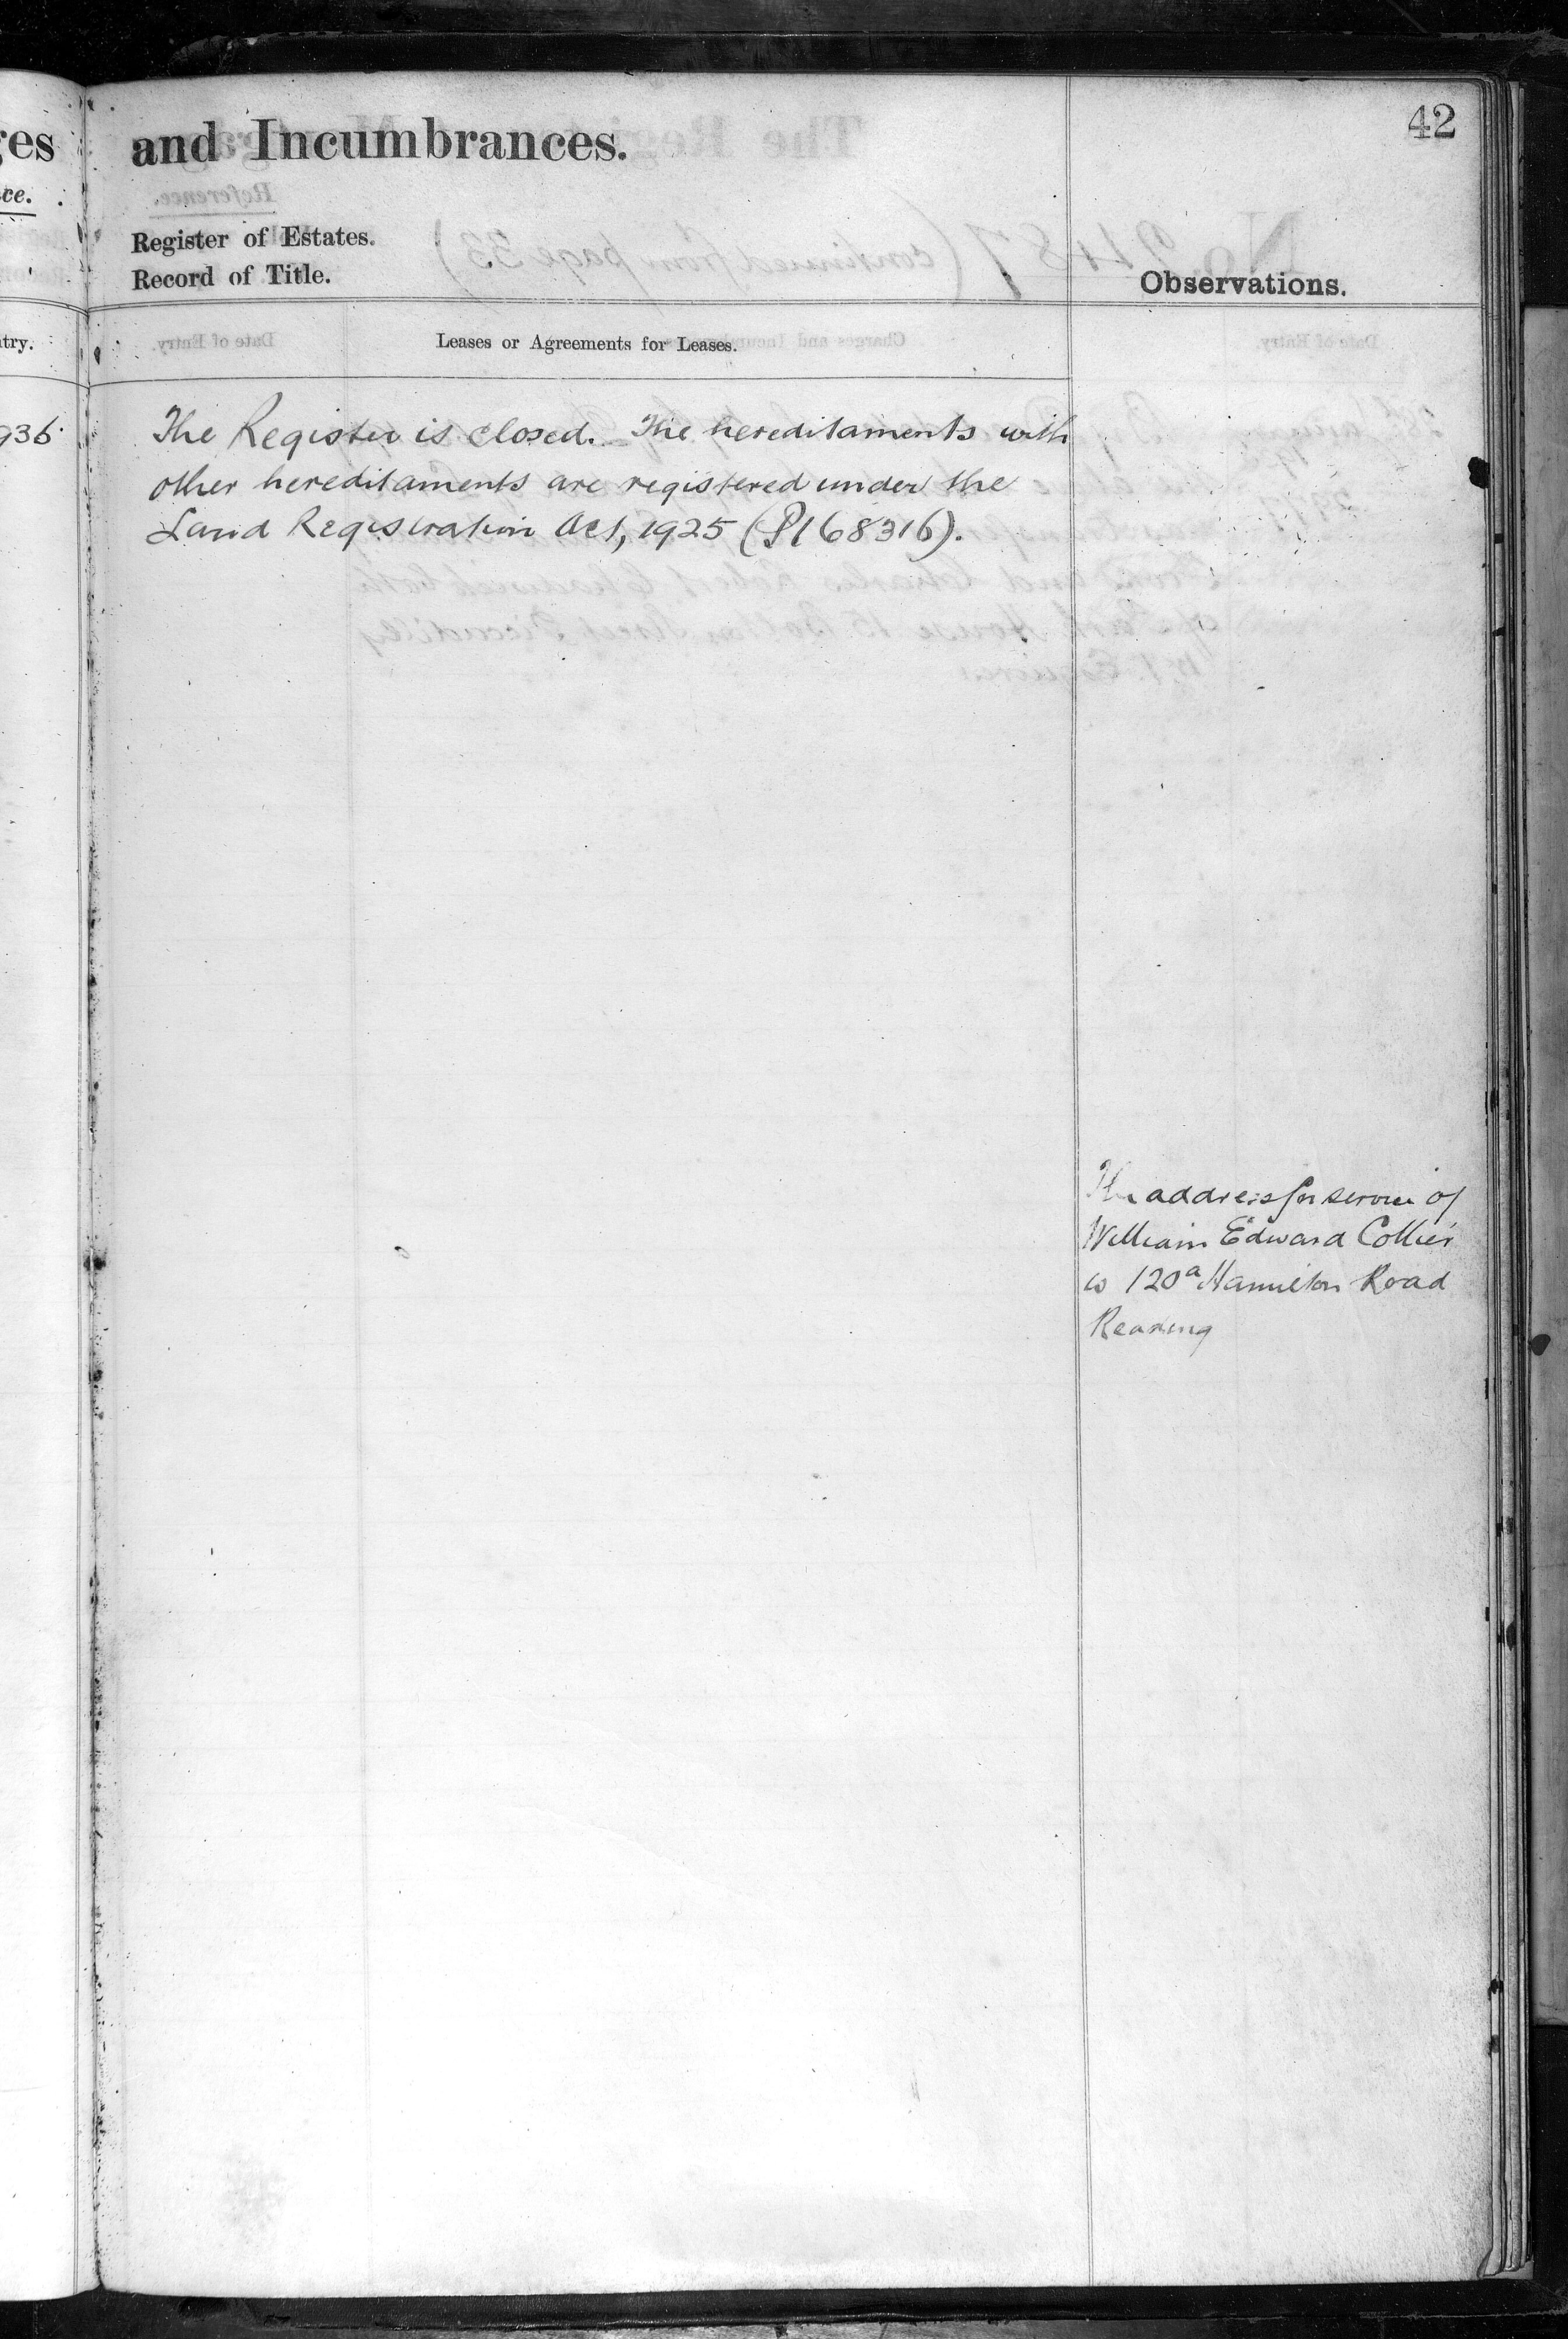 ges
ce.
try.
936
42
and Incumbrances.
Register of Estates.
Record of Title.
Observations.
Leases or Agreements for Leases.
The Register is closed. The hereditaments with
other hereditaments are registered under the
Land Registration Act, 1925 (P168316).
The address for service of
William Edward Collier
is 120a Hamilton Road
Reading